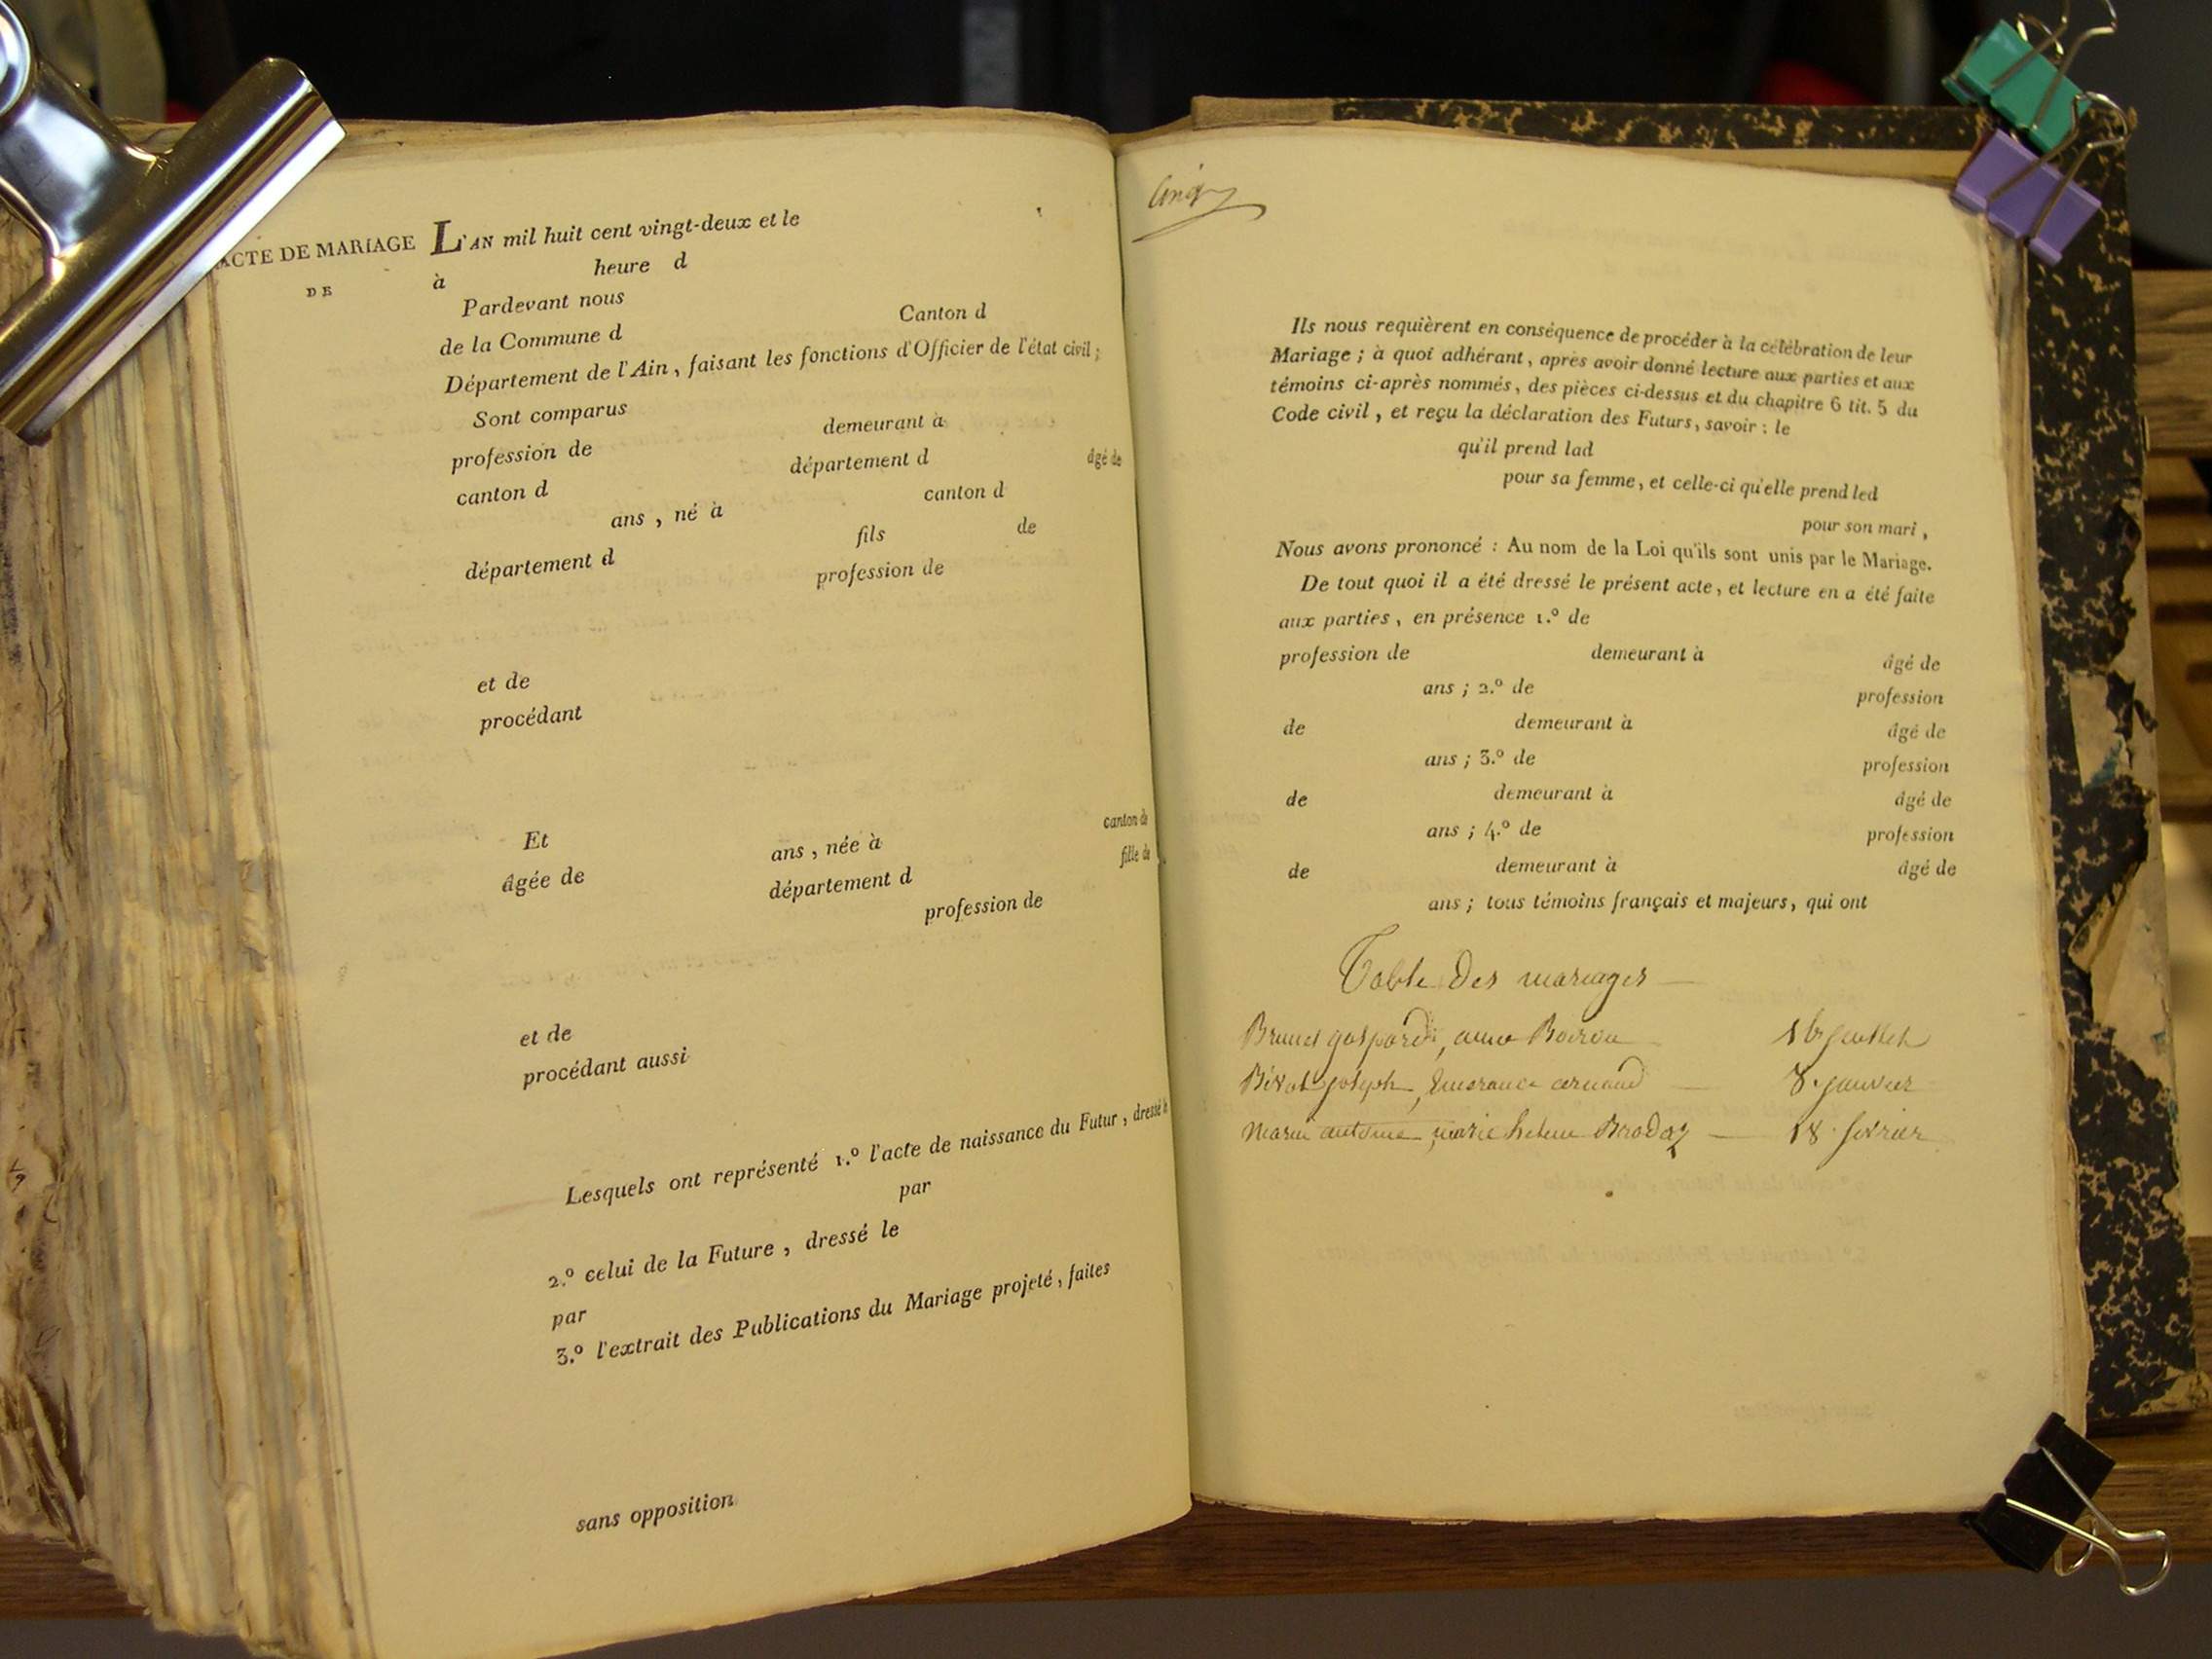 ACTE DE MARIAGE
DE
L'AN mil huit cent vingt-deux et le
à heure d
Pardevant nous
de la Commune d Canton d
Département de l'Ain, faisant les fonctions d'Officier de l'état civil;
Sont comparus
profession de demeurant à
canton d département d âgé de
ans, né à canton d
département d fils de
profession de
et de
procédant
Et
âgée de ans, née à canton de
département d fille de
profession de
et de
procédant aussi
Lesquels ont représenté 1.º l'acte de naissance du Futur, dressé le
par
2.º celui de la Future, dressé le
par
3.º l'extrait des Publications du Mariage projeté, faites
sans opposition
Ils nous requièrent en conséquence de procéder à la célébration de leur
Mariage; à quoi adhérant, après avoir donné lecture aux parties et aux
témoins ci-après nommés, des pièces ci-dessus et du chapitre 6 tit. 5 du
Code civil, et reçu la déclaration des Futurs, savoir: le
qu'il prend lad
pour sa femme, et celle-ci qu'elle prend led
pour son mari,
Nous avons prononcé: Au nom de la Loi qu'ils sont unis par le Mariage.
De tout quoi il a été dressé le présent acte, et lecture en a été faite
aux parties, en présence 1.º de
profession de demeurant à âgé de
ans; 2.º de profession
de demeurant à âgé de
ans; 3.º de profession
de demeurant à âgé de
ans; 4.º de profession
de demeurant à âgé de
ans; tous témoins français et majeurs, qui ont
Table Des mariages
Brunet gaspard, anne juillet
joseph, 8. janvier
marin antoine, marie helene Brodaz 18. fevrier